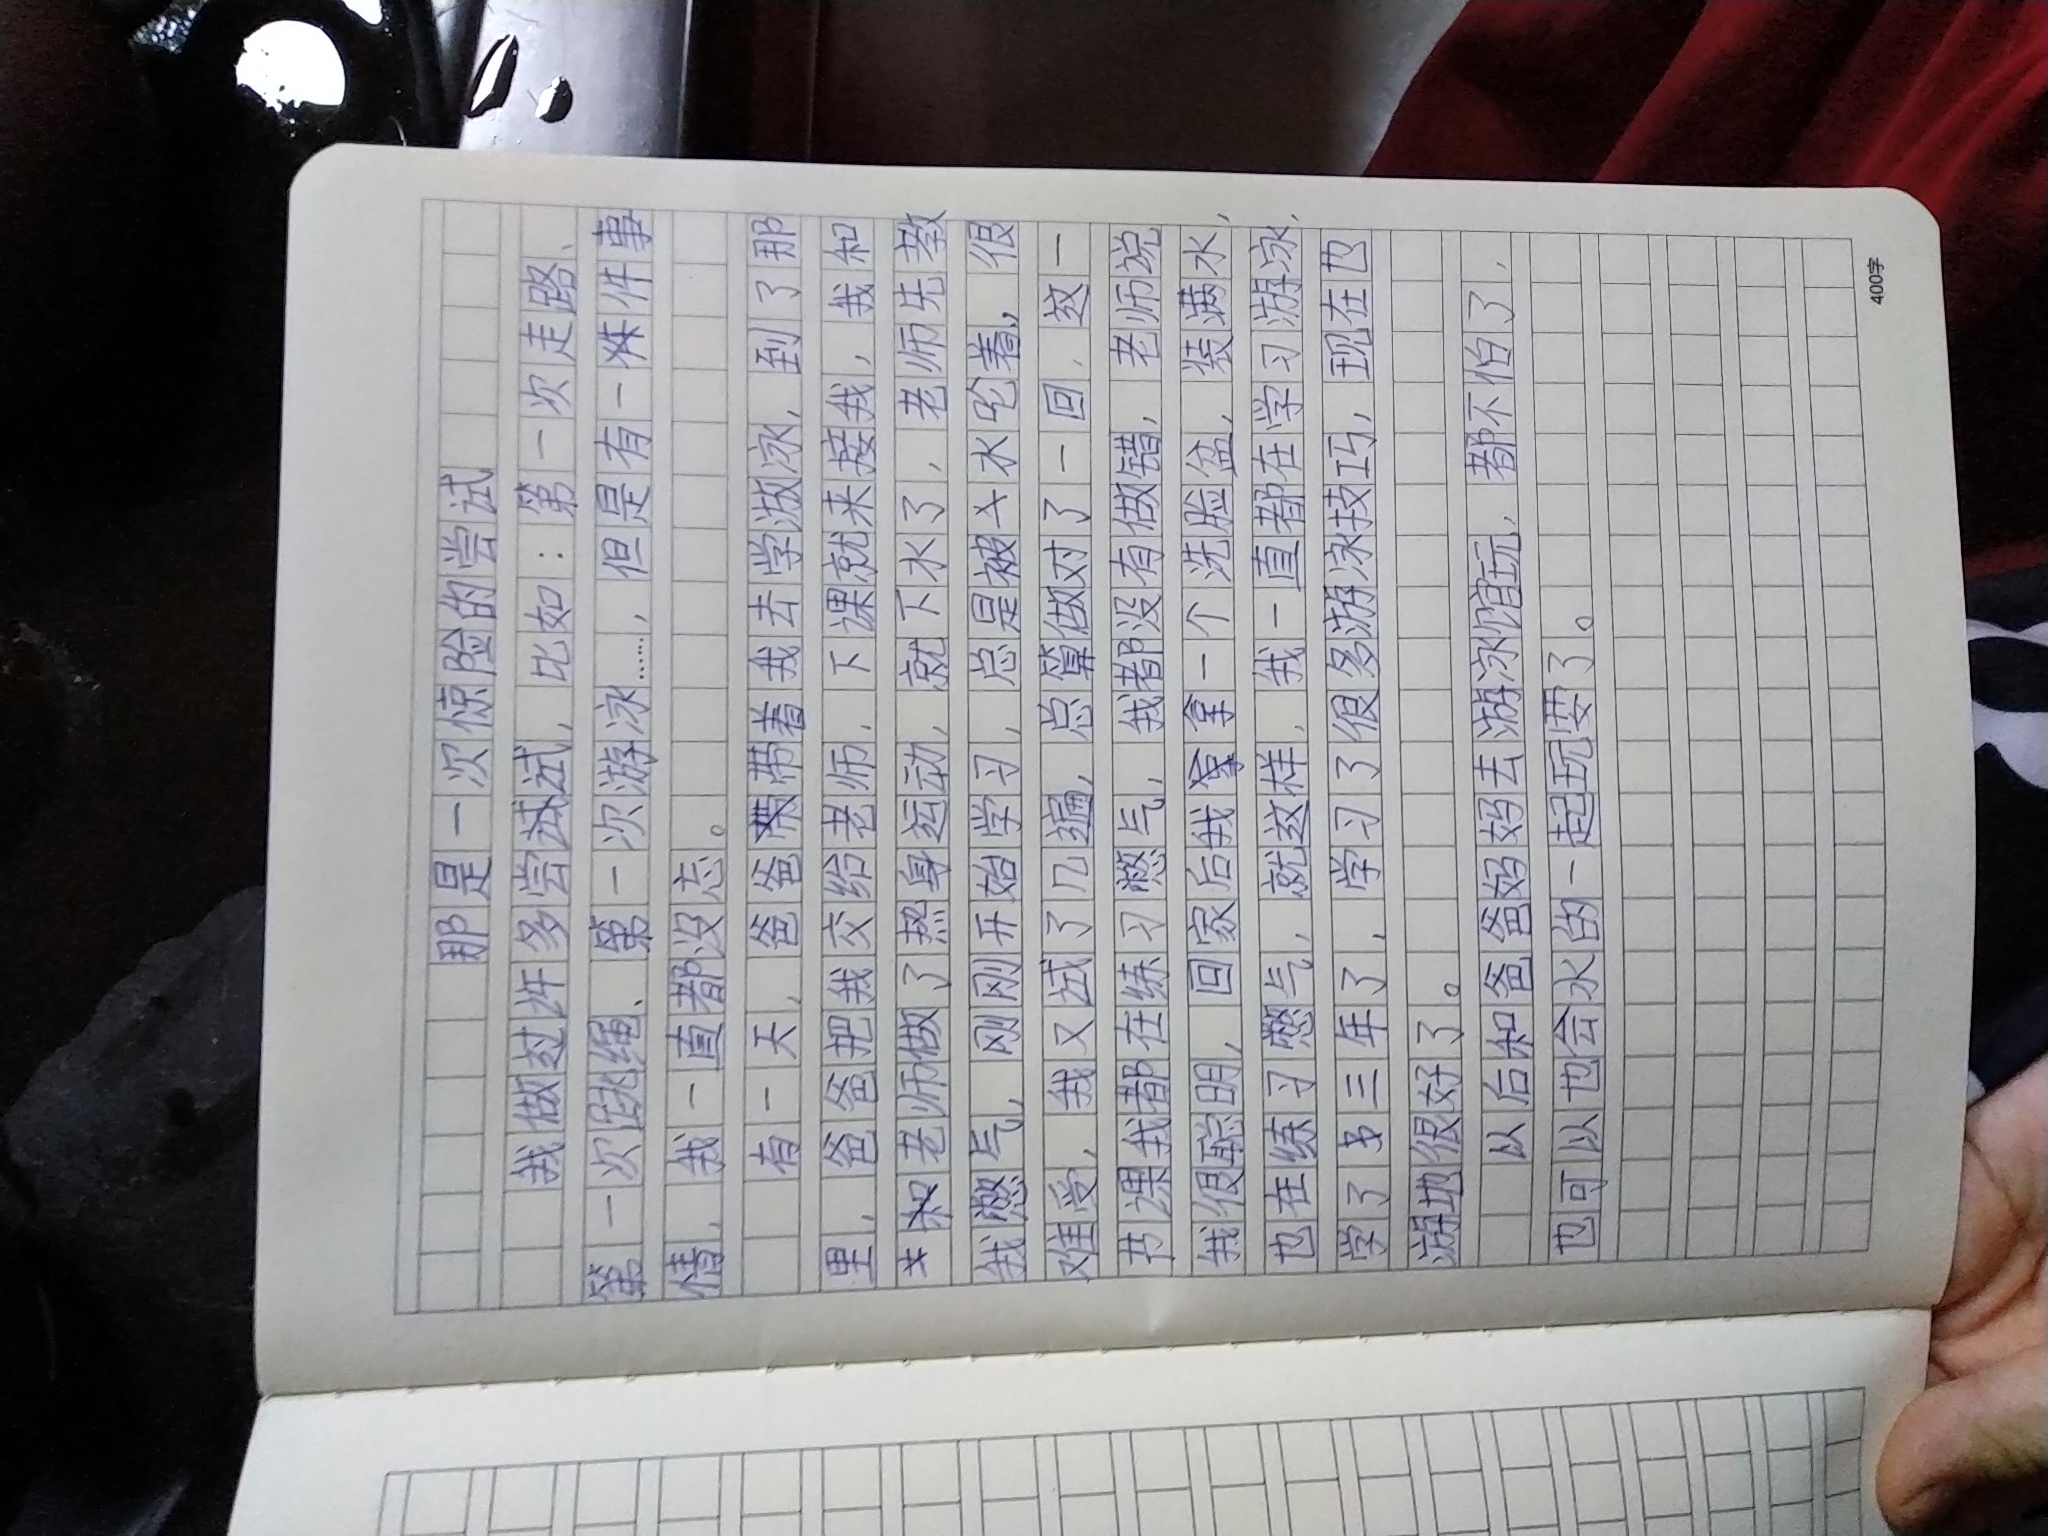 那是一次惊险的尝试
我做过许多尝试试，比如：第一次走路、
第一次跳绳、第一次游泳……，但是有一件件事
情，我一直都没忘。
有一天，爸爸带带着我去学游泳，到了那
里，爸爸把我交给老师，下课就来接我，我和
老师做了热身运动，就下水了，老师先教
我憋气，刚刚开始学习，总是被水呛着，很
难受，我又试了几遍，总算做对了一回，这一
节课我都在练习憋气，我都没有做错，老师说
我很聪明，回家后我拿一个洗脸盆，装满水，
也在练习憋气，就这样，我一直都在学习游泳，
学了第三年了，学习了很多游泳技巧，现在也
游地很好了。
以后和爸爸妈妈去游泳馆玩，都不怕了，
也可以也会水的一起玩耍了。
400字